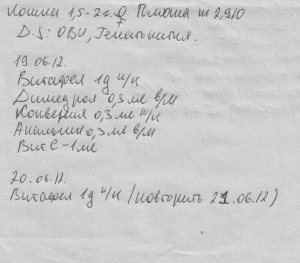 Кошка 1,5-2г. ♀ Плюша m 2,910
D.S: ОВИ, Гепатития.
19.06.12.
Витафел 1д п/к
Димедрол 0,3 мл в/м
Конверия 0,3 мл п/к
Анальгин 0,3 мл в/м
Вит С - 1 мл
20.06.12.
Витафел 1д п/к (повторить 21.06.12)